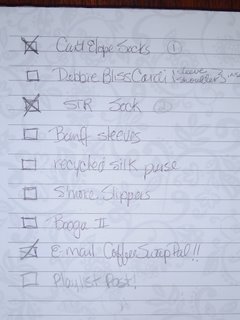 Cant Elope Socks ①
Debbie Bliss Cardi (sleeve shoulder)
STR Sock ②
Banff sleeves
recycled silk purse
Shmoe Slippers
Booga II
E-mail Coffee Swap Pal!!
Playlist Post!